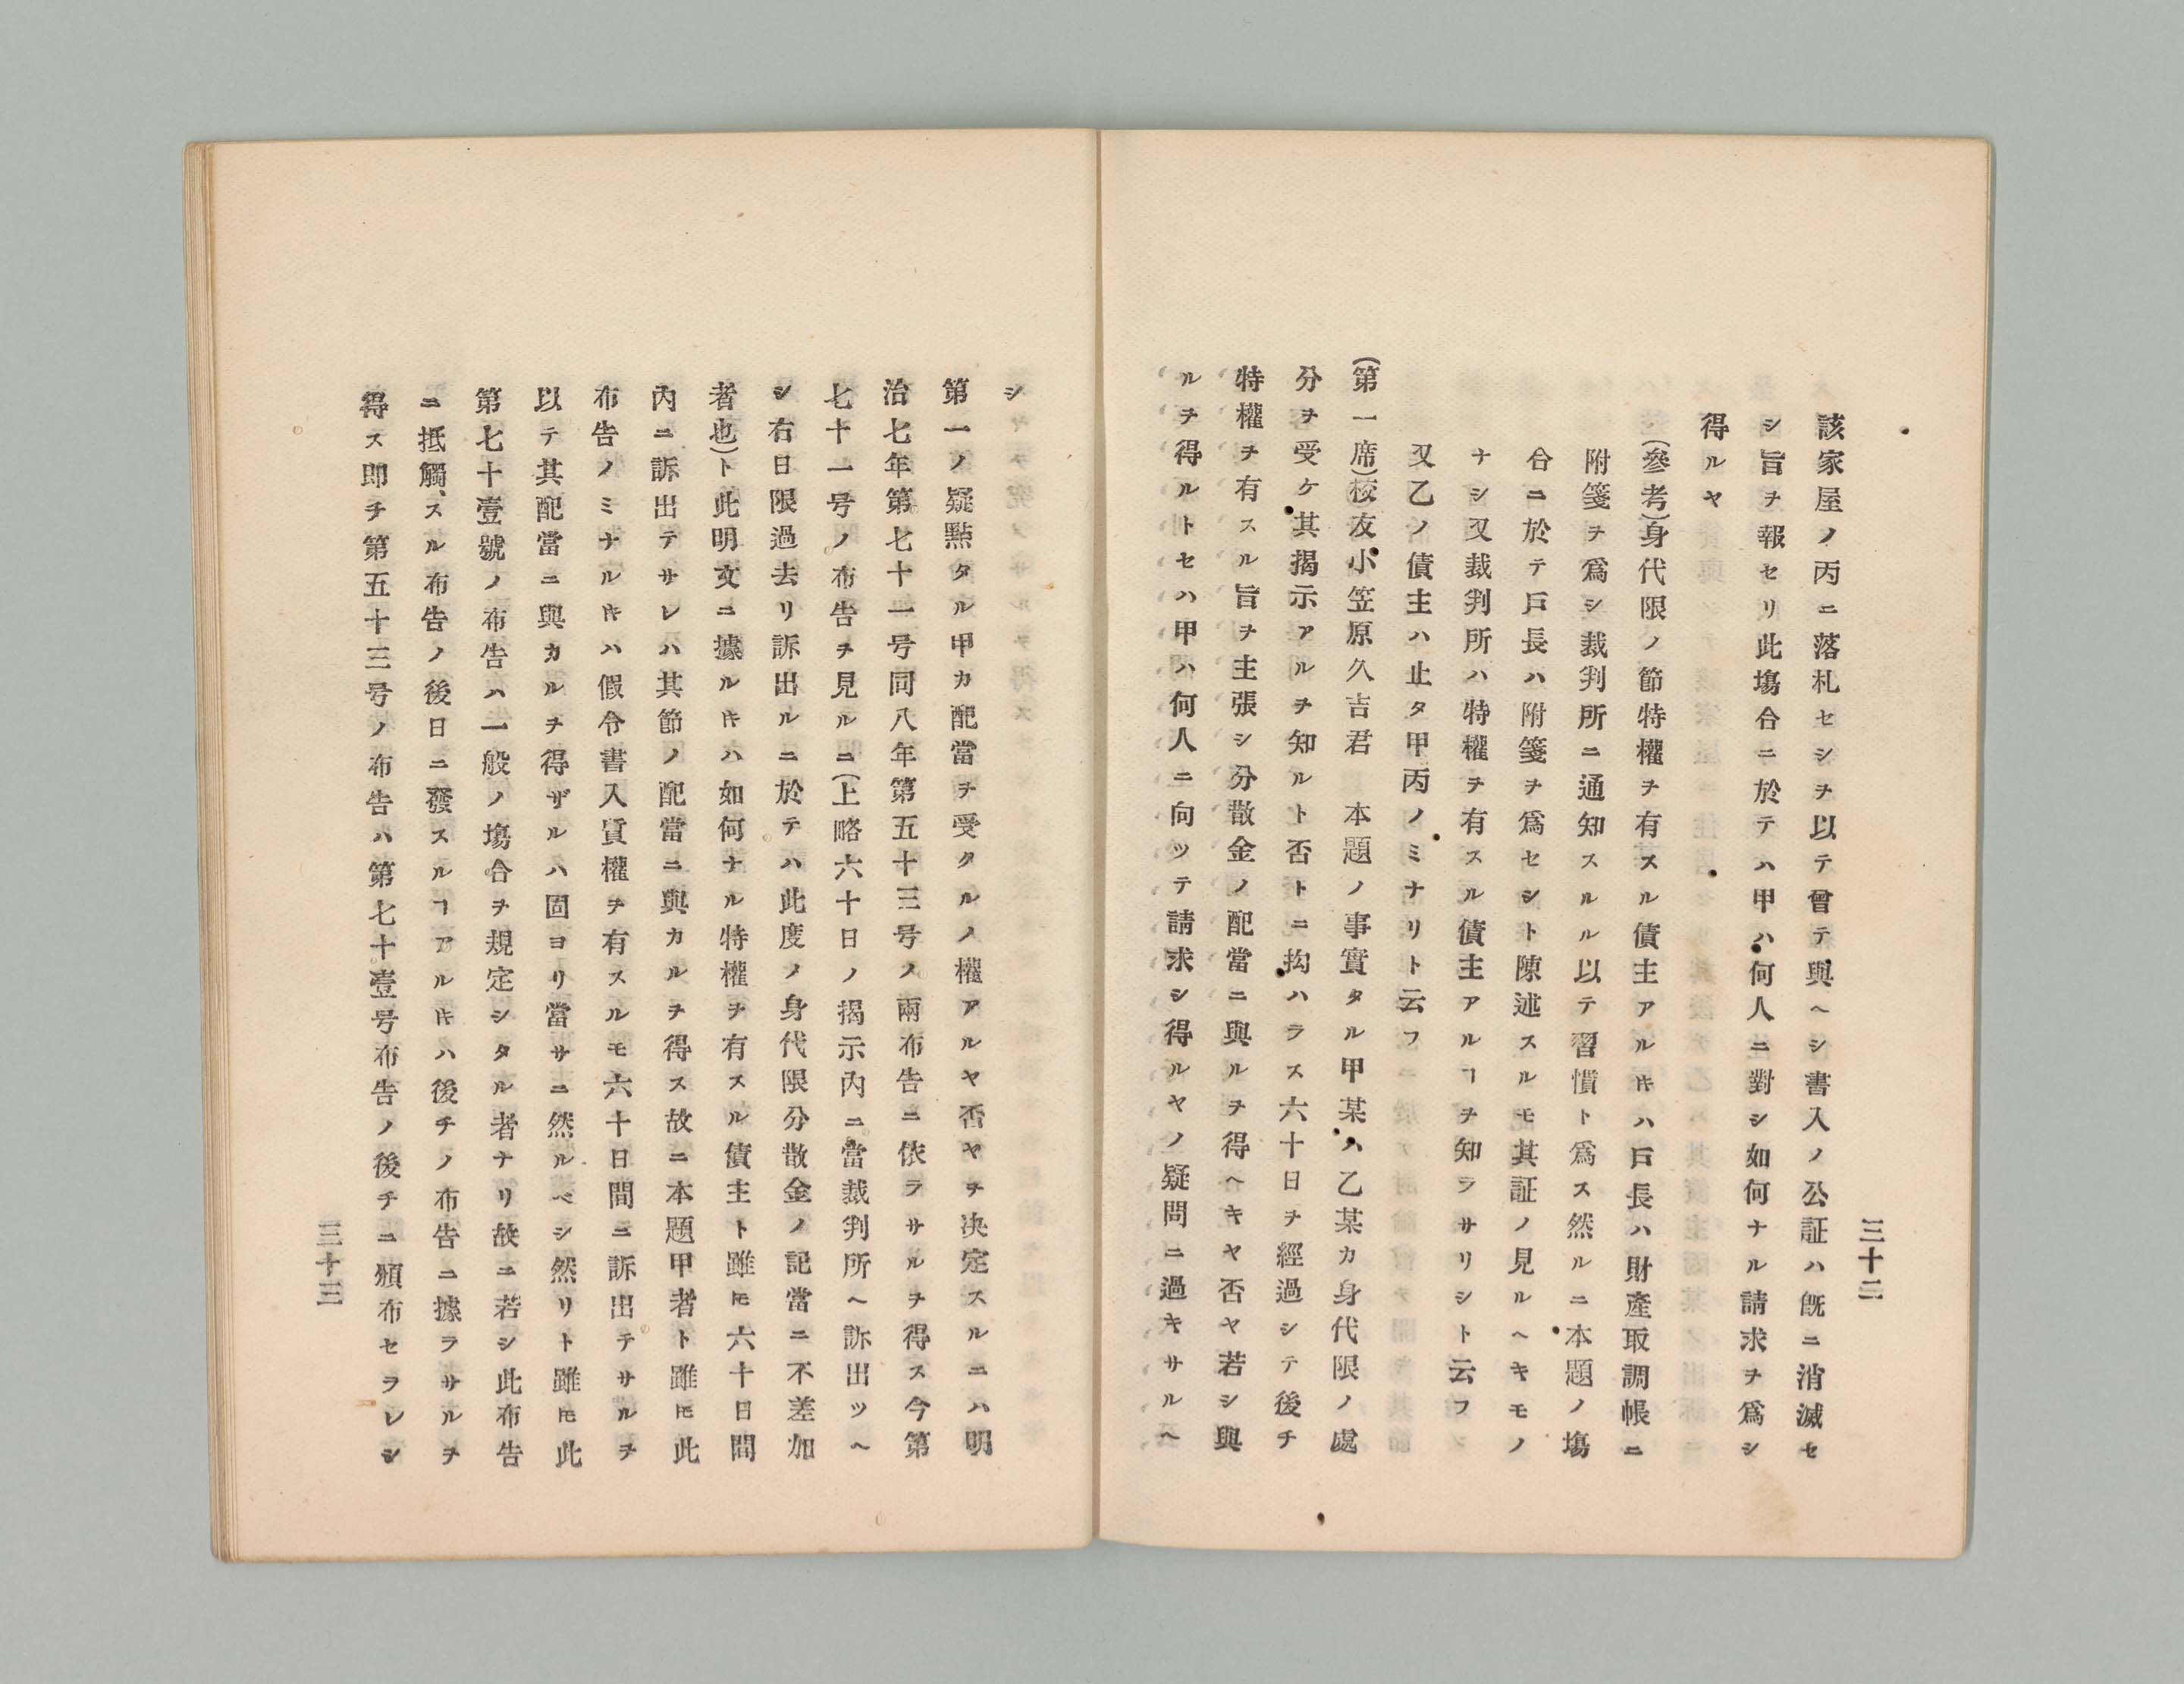 三十二
該家屋ノ丙ニ落札セシヲ以テ曾テ與ヘシ書入ノ公証ハ既ニ消滅セ
シ旨ヲ報セリ此塲合ニ於テハ甲ハ何人ニ對シ如何ナル請求ヲ爲シ
得ルヤ
(參考)身代限ノ節特權ヲ有スル債主アルヰハ戸長ハ財產取調帳ニ
附箋ヲ爲シ裁判所ニ通知スルル以テ習慣ト爲ス然ルニ本題ノ塲
合ニ於テ戸長ハ附箋ヲ爲セシト陳述スルモ其証ノ見ルヘキモノ
ナシ又裁判所ハ特權ヲ有スル債主アルヿヲ知ラサリシト云フ
又乙ノ債主ハ止タ甲丙ノミナリト云フ
(第一席)校友小笠原久吉君 本題ノ事實タル甲某ハ乙某カ身代限ノ處
分ヲ受ケ其揭示アルヲ知ルト否トニ拘ハラス六十日ヲ經過シテ後チ
特權ヲ有スル旨ヲ主張シ分散金ノ配當ニ與ルヲ得ヘキヤ否ヤ若シ與
ルヲ得ルトセハ甲ハ何人ニ向ッテ請求シ得ルヤノ疑問ニ過キサルヘ
シ
第一ノ疑點タル甲カ配當ヲ受クルノ權アルヤ否ヤヲ决定スルニハ明
治七年第七十一号同八年第五十三号ノ兩布告ニ依ラサルヲ得ス今第
七十一号ノ布告ヲ見ルニ(上略六十日ノ揭示內ニ當裁判所ヘ訴出ツヘ
シ右日限過去リ訴出ルニ於テハ此度ノ身代限分散金ノ記當ニ不差加
者也)ト此明文ニ據ルヰハ如何ナル特權ヲ有スル債主ト雖 モ六十日間
內ニ訴出テサレハ其節ノ配當ニ與カルヲ得ス故ニ本題甲者ト雖 モ此
布告ノミナルヰハ假令書入質權ヲ有スルモ六十日間ニ訴出テサルヲ
以テ其配當ニ與カルヲ得ザルハ固ヨリ當サニ然ルベシ然リト雖 モ此
第七十壹號ノ布告ハ一般ノ塲合ヲ規定シタル者ナリ故ニ若シ此布告
ニ抵觸、スル布告ノ後日ニ發スルヿアルヰハ後チノ布告ニ據ラサルヲ
得ス即チ第五十三号ノ布告ハ第七十壹号布告ノ後チニ頒布セラレシ
三十三